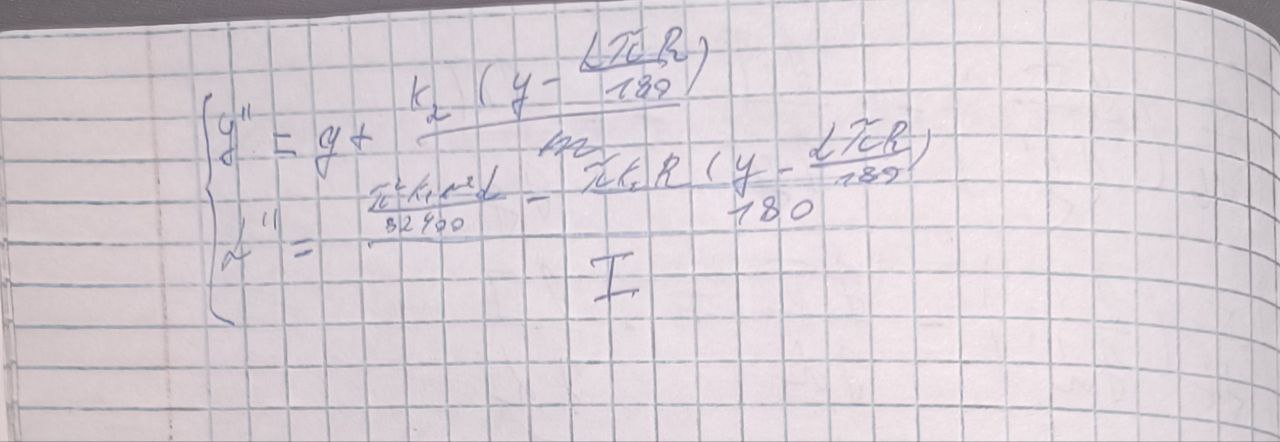 y'' = g + k₂ (y - απR/180) / m
α'' = (π²k₁r²α/32400 - πk₂R (y - απR/180) / 180) / I